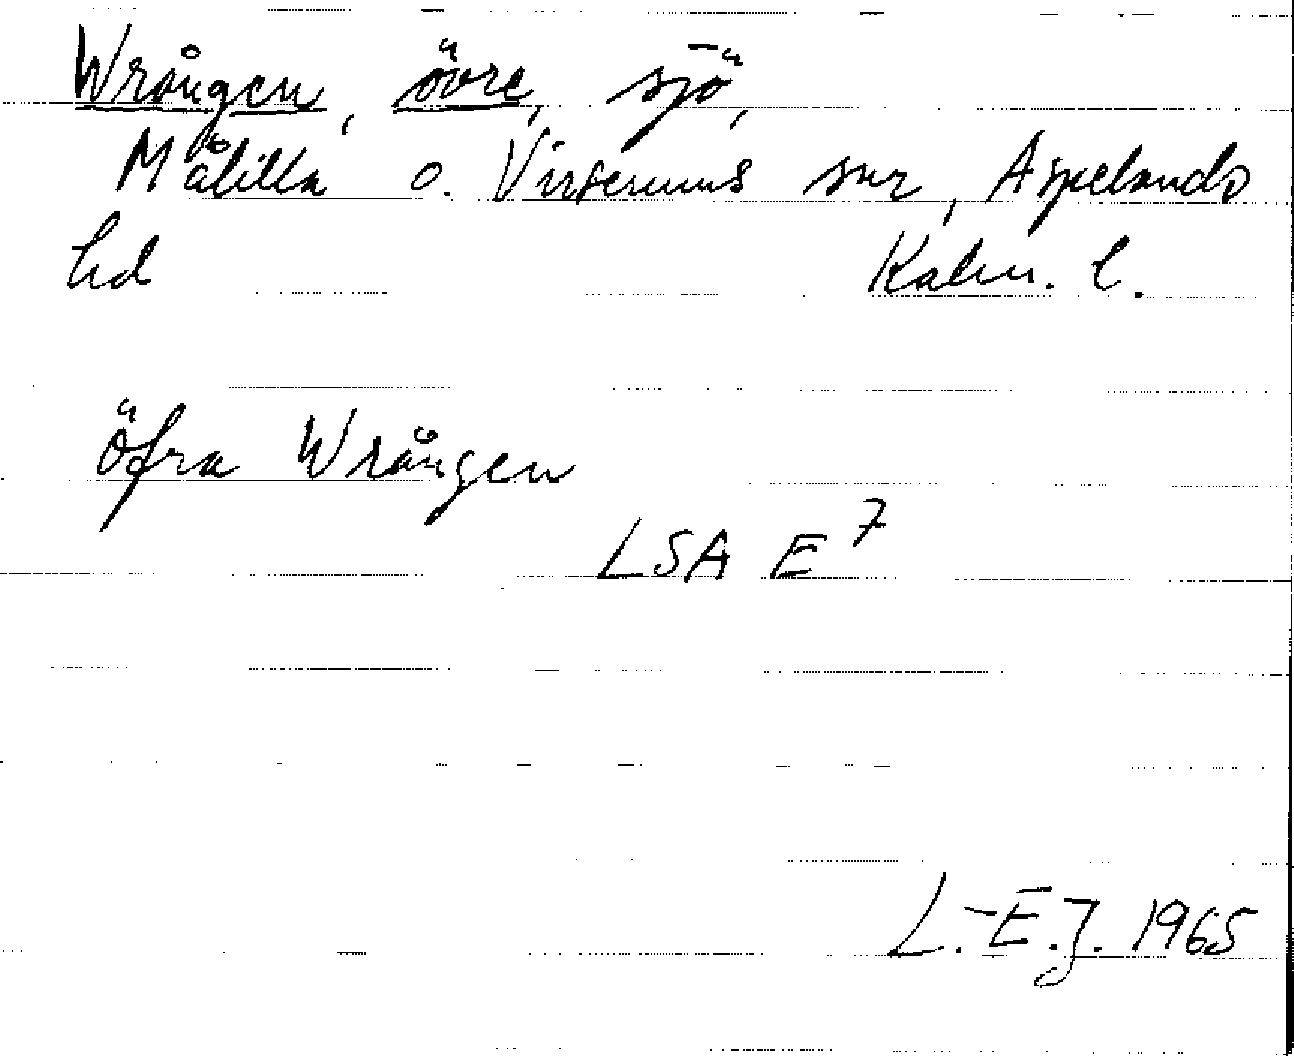 Wrången, övre, sjö,
Målilla o. Virserums snr, Aspelands
hd Kalm. l.
öfra Wrången
LSA E 7
L.-E.J. 1965